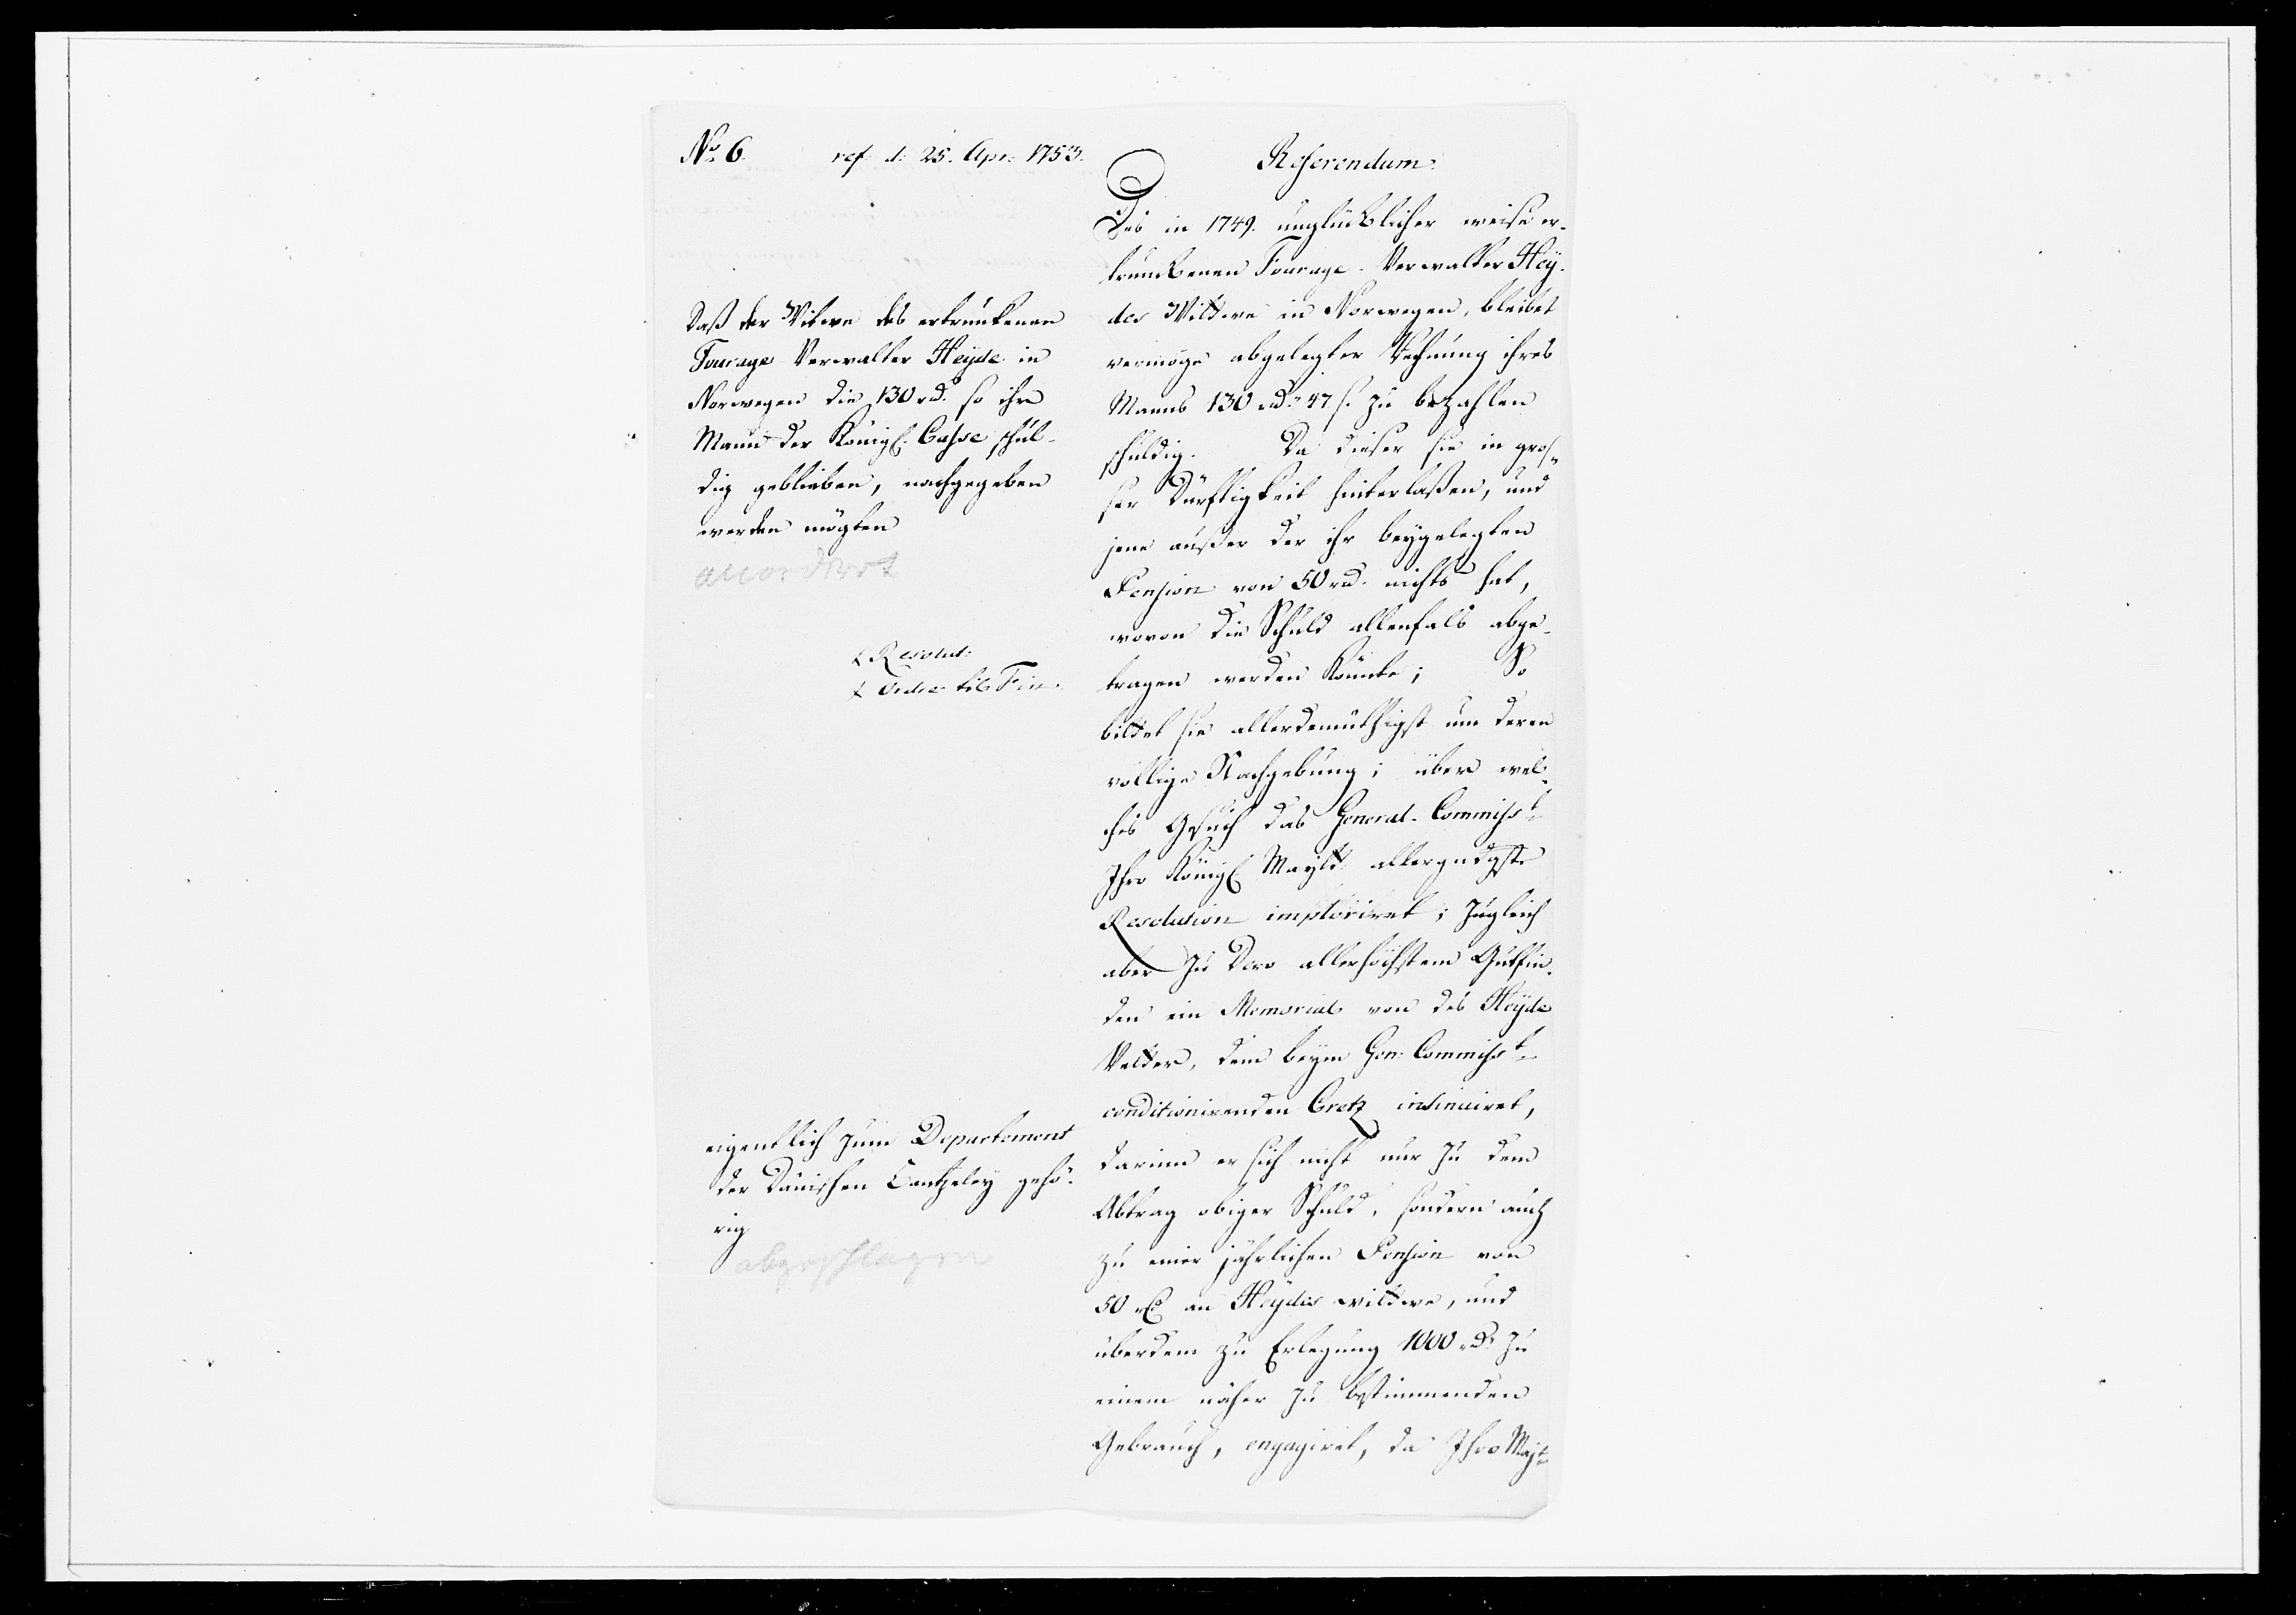 No 6. ref. d. 25. Apr. 1753.
Referendum.
Daß der Witwe des ertrunkenen
Fourage Verwalter Heyde in
Norwegen die 130 rd. so ihr
Mann der Königl. Casse schul-
dig geblieben, nachgegeben
werden mögten
accordirt
Resolut:
Ordre til Fin.
eigentlich zum Departement
der Dänischen Cantzeley gehö-
rig
abgeschlagen
Des in 1749. unglücklicher weise er-
trunckenen Fourage-Verwalter Hey-
des Wittwe in Norwegen, bleibet
vermöge abgelegter Rechnung ihres
Manns 130 rd. 47 s. zu bezahlen
schuldig. Da dieser sie in gros-
ser Dürftigkeit hinterlaßen, und
jene außer der ihr beygelegten
Pension von 50 rd. nichts hat,
wovon die Schuld allenfals abge-
tragen werden könnte; So
bittet sie allerdemüthigst um deren
völlige Nachgebung; über wel-
ches Gesuch das General-Commisst.
Ihro Königl Maytt. allergndgste
Resolution imploriret; zugleich
aber zu Dero allerhöchstem Gutfin-
den ein Memorial von des Heyde
Vetter, dem beym Gen: Commisst.
conditionirenden Cretz insinuiret,
darinn er sich nicht nur zu dem
Abtrag obiger Schuld, sondern auch
zu einer jährlichen Pension von
50 rd an Heydes wittwe, und
überdem zu Erlegung 1000 rd. zu
einem näher zu bestimmenden
Gebrauch, engagiret, da Ihro Majt.